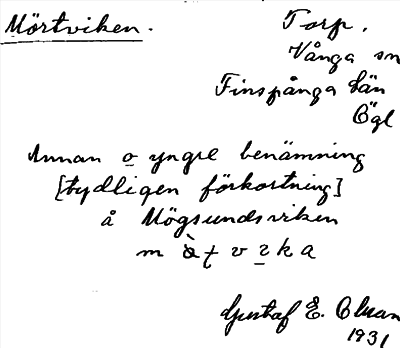 Mörtviken.
Torp.
Vånga sn
Finspånga län
Ögl
Annan o yngre benämning
[tydligen förkortning]
å Mögsundsviken
Gustaf E.
1931